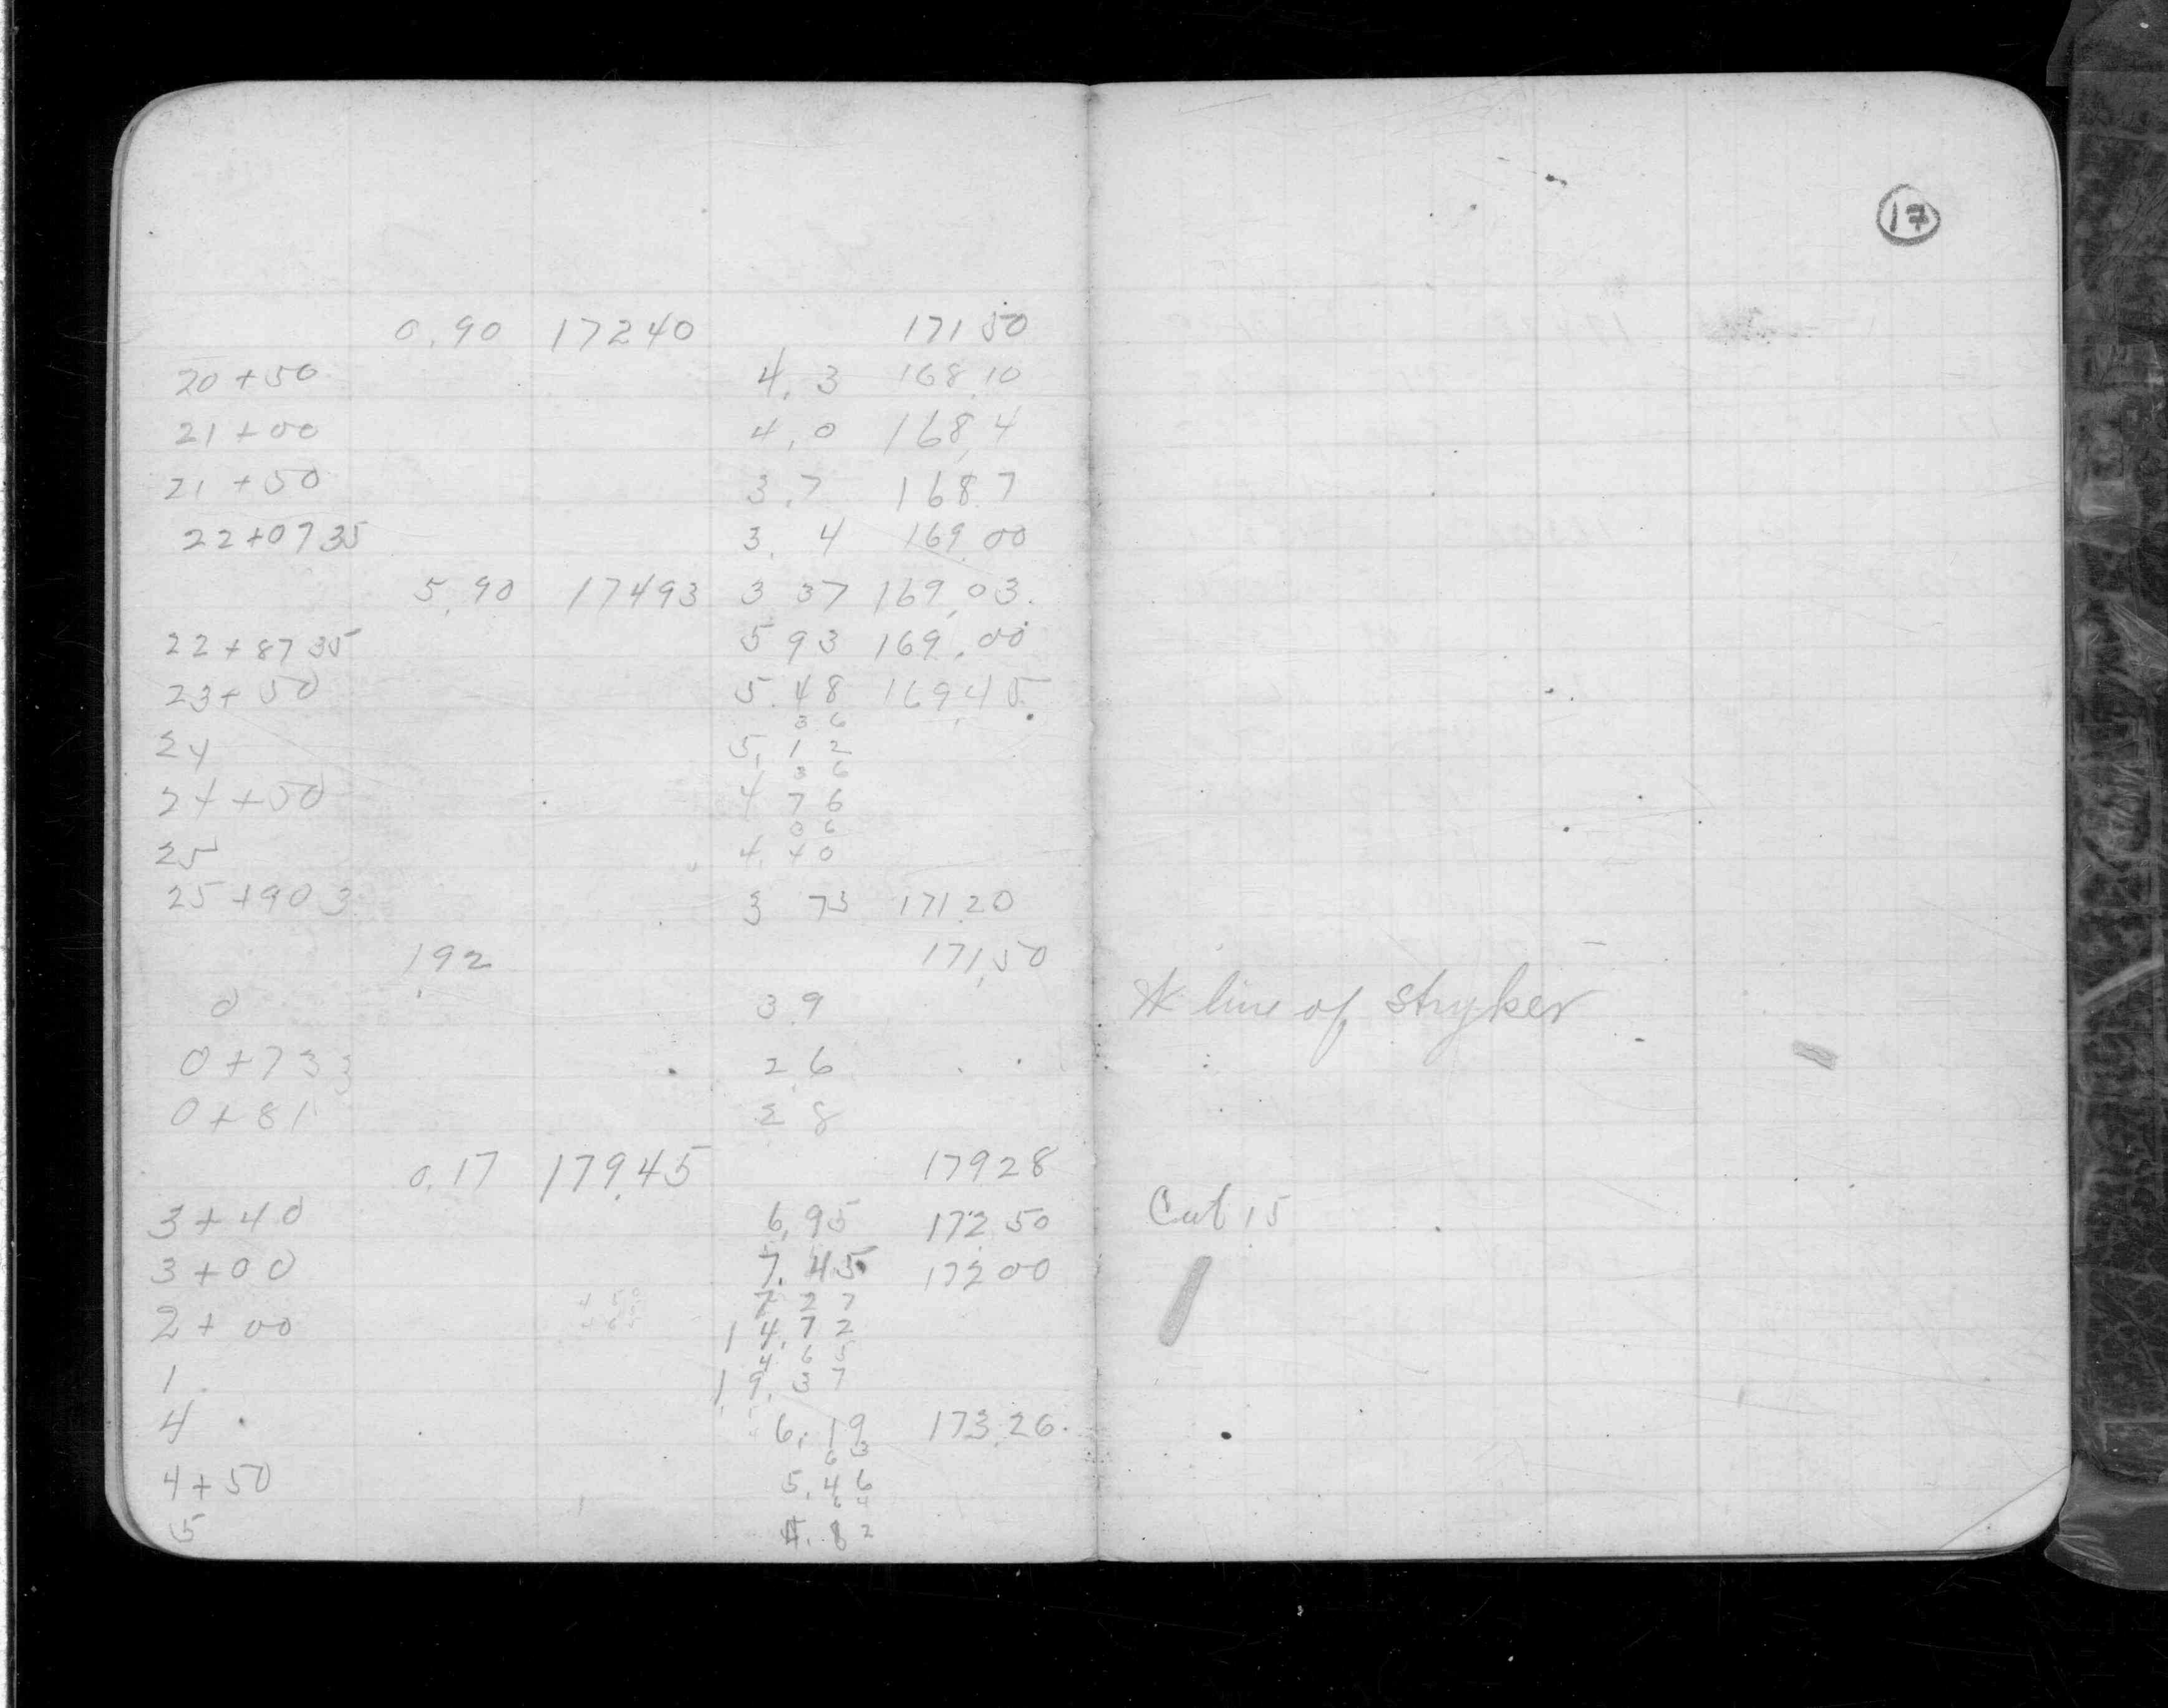 17
0.90 17240 171 50
20+50 4.3 168.10
21+00 4.0 168.4
21+50 3.7 168 7
22+07 35 3.4 169.00
5.90 17493 3 37 169.03.
22+87 35 5 93 169.00
23+50 5.48 169.45
36
24 5.12
36
24+50 4 76
36
25 4.40
25+90 3 3 73 171.20
1.92 171.50
0 3.9 St line of Stryker
0+73 3 2.6
0+81 2 8
0.17 179.45 17928
3+40 6.95 172.50 Cut 15
3+00 7.45 172 00
7 27
2+00 14.72
4 65
1 19.37
4 6.19 173.26
63
4+50 5.46
64
5 4.82